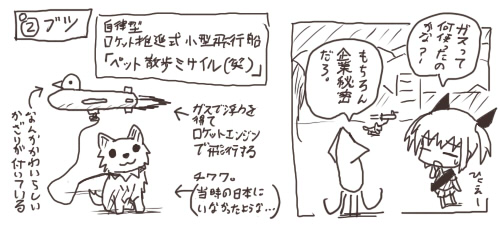 ② ブツ
自律型
ロケット推進式小型飛行船
「ペット散歩ミサイル(笑)」
なんかかわいらしい
かざりが付いている
ガスで浮力を
得て
ロケットエンジン
で飛行する
チワワ。
(当時の日本に
いなかったような…)
ガスって
何使ったの
かな?ー
もちろん
企業秘密
だろ。
ひえー